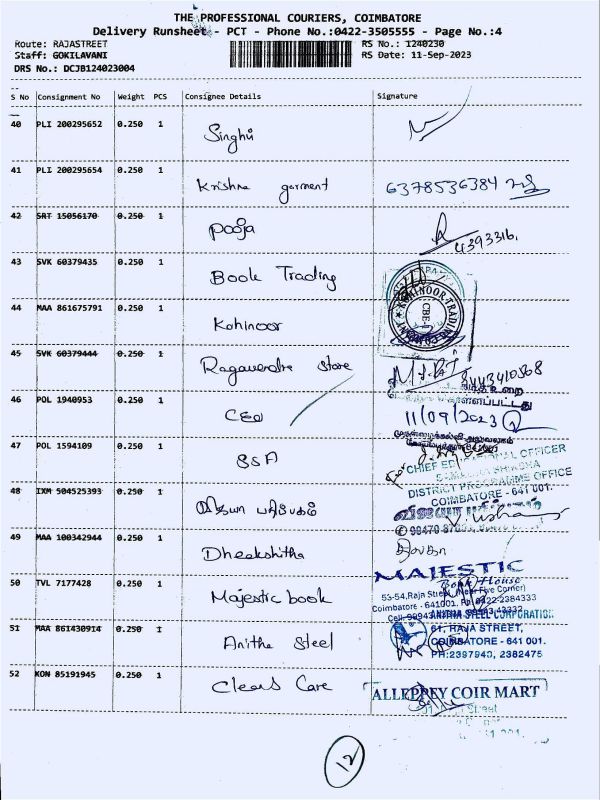 THE PROFESSIONAL COURIERS, COIMBATORE
Delivery Runsheet - PCT - Phone No.:0422-3505555 - Page No.:4
Route: RAJASTREET RS No.: 1240230
Staff: GOKILAVANI RS Date: 11-Sep-2023
DRS No.: DCJB124023004
S No Consignment No Weight PCS Consignee Details Signature
40 PLI 200295652 0.250 1 Singhvi
41 PLI 200295654 0.250 1 Krishna garment 6378536384
42 SRT 15056170 0.250 1 Pooja 4393316
43 SVK 60379435 0.250 1 Book Trading
44 MAA 861675791 0.250 1 Kohinoor
KOHINOOR TRADING
CBE-1
45 SVK 60379444 0.250 1 Ragavendra Store
46 POL 1940953 0.250 1 CEO
11/09/2023
47 POL 1594109 0.250 1 SSA
CHIEF EDUCATIONAL OFFICER
DISTRICT PROGRAMME OFFICE
COIMBATORE - 641 001.
48 IXM 504525393 0.250 1 விஜயா பதிப்பகம்
49 MAA 100342944 0.250 1 Dheekshitha
50 TVL 7177428 0.250 1 Majestic book
MAJESTIC
Book House
53-54,Raja Street, (Near Five Corner)
Coimbatore - 641001. Ph:0422-2384333
51 MAA 861430914 0.250 1 Anitha Steel
ANITHA STEEL CORPORATION
61, RAJA STREET,
COIMBATORE - 641 001.
PH:2397943, 2382475
52 KON 85191945 0.250 1 Clears Care
ALLEPPEY COIR MART
12